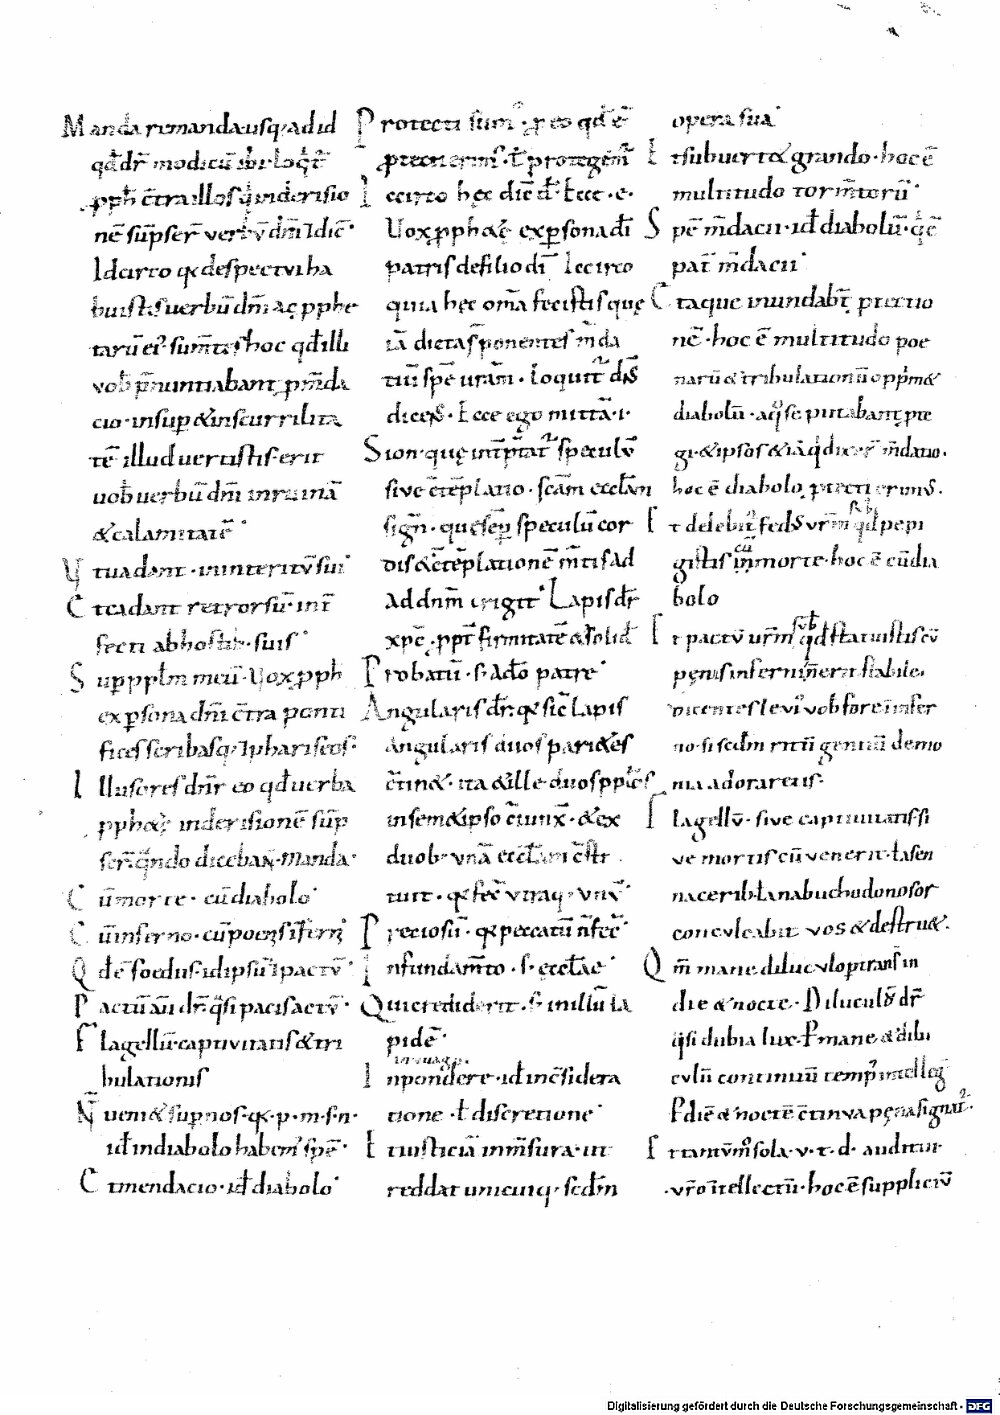 Manda remanda usq; ad id
qd dr̄ modicū ibi loq̄t̄
pph̄ c̄tra illos q̄ in derisio
nē sūpser̄ verbū dm̄i
Idcirco qđ despectui ha
buistis uerbū dm̄i ac pphe
tarū ei; sum̄tes hoc qđ illi
vob̄ p̄nuntiabant p̄ m̄da
cio · insup & in scurrilita
tē illud uertistis erit
uob̄ uerbū dm̄i in ruinā
& calamitatē ·
V t uadant · in interitū sui ·
C t cadant retrorsū · int̄
fecti ab hostib; suis ·
S up pplm̄ meū · Vox pph̄
ex psona dm̄i c̄tra ponti
fices scribasq; & phariseos ·
I llusores dn̄r eo qđ uerba
pph̄&ę in derisionē sūp
ser̄ q̄ndo diceban̄t · Manda ·
C ū morte · cū diabolo ·
C ū inferno · cū poenis
Q dē foedus · id ipsū & pactū ·
P actū aūt dr̄ q̄si pacis actū ·
F lagellū captivitatis & tri
bulationis
N̄ ueni& sup nos · q̄ · p · m · s · n ·
id in diabolo habem; spē ·
C t mendacio · id diabolo ·
P rotecti sum; · p eo qđ ē
protecti erim; · ł protegem̄
I ccirco hec dic̄ ds̄ · Ecce · e ·
Vox pph&ę ex psona dī
patris de filio dī Iccirco
quia hęc om̄a fecistis quę
iā dicta s̄ ponentes m̄da
tiū spē uram̄ · loquit̄ dn̄s
dicens · Ecce ego mittā · i ·
S ion · quę int̄p̄tat̄ speculū
sive c̄tēplatio · scām ecclām
sign̄ · que sep̄ speculū cor
dis & c̄tēplationē m̄tis ad
ad dnm̄ erigit · Lapis dr̄
xp̄c · ppt̄ firmitatē & solid̄
P robatū · s · a dō patre ·
Angularis dr̄ · q̄ sic̄ lapis
angularis duos pari&es
c̄tin& · ita & ille duos pplōs
in sem&ipso c̄iunx̄ · & ex
duob; unā ecclām c̄str
tuit · q̄ fec̄ utraq; unū ·
P reciosū · q̄ peccatū n̄ fec̄ ·
I n fundam̄to · s · ęcclae ·
Qui crediderit · s · in illū la
pidē ·
I n pondere · id in c̄sidera
tione · ł discretione ·
E t iusticiā in m̄sura · ut
reddat unicuiq; scdm̄
opera sua ·
E t subuert& grando · hoc ē
multitudo torm̄torū ·
S pē m̄dacii · id diabolū · q̄ ē
pat̄ m̄dacii ·
C taque inundab̄t p̄tectio
nē · hoc ē multitudo poe
narū & tribulationū opp̄m&
diabolū · a quo se putabant pte
gi · & ipsos & iā q̄ dixer̄ m̄datio ·
hoc ē diabolo ptecti erim; ·
E t delebit̄ fed; vr̄m qđ pepi
gistis cū morte · hoc ē cū dia
bolo
E t pactū ur̄m qđ statuistis cū
penis inferni n̄ erit stabile ·
dicentes levi; vob̄ fore īn infer
no · si scdm̄ ritū gentiū demo
nia adorareris ·
F lagellū · sive captiuitatis si
ve mortis cū venerit · ł a sen
nacerib · ł a nabuchodonosor
conculcabit vos & destru& ·
Q m̄ mane diluculo ptransīt in
die & nocte · Diluculū dr̄
q̄si dubia lux · P mane & dilu
culū continuū temp; intelleg̃
P diē & noctē c̄tinua pęna signat̄ ·
E t tantūm; sola · v · t · d · auditui
vr̄o intellectū · hoc ē suppliciū
Digitalisierung gefördert durch die Deutsche Forschungsgemeinschaft - DFG